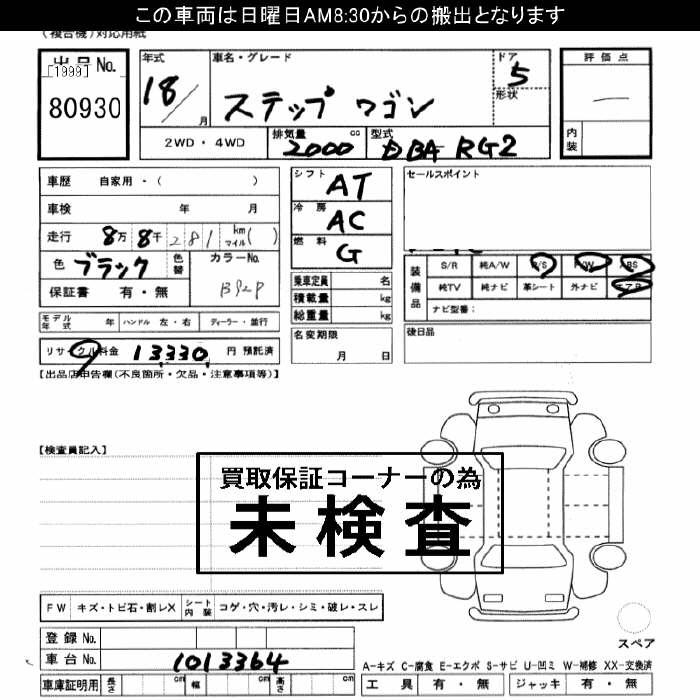 この車両は日曜日AM8:30からの搬出となります
(複合機)対応用紙
出品No.
[1999]
80930
年式
18/月
車名・グレード
ステップ ワゴン
ドア
5
形状
評価点
内装
2WD・4WD
排気量 cc
2000
型式
DBA RG2
車歴 自家用・( )
車検 年 月
走行 8万 8千 281 km マイル( )
色 ブラック 色替
カラーNo.
B92P
保証書 有・無
シフト AT
冷房 AC
燃料 G
セールスポイント
乗車定員 名
積載量 kg
総重量 kg
装備品
S/R 純A/W P/S P/W ABS
純TV 純ナビ 革シート 外ナビ エアB
ナビ型番:
モデル年式 年 ハンドル 左・右 ディーラー・並行
名変期限
月 日
後日品
リサイクル料金 13,330 円 預託済
【出品店申告欄(不良箇所・欠品・注意事項等)】
【検査員記入】
買取保証コーナーの為
未検査
FW キズ・トビ石・割レX シート内装 コゲ・穴・汚レ・シミ・破レ・スレ
スペア
登録No.
車台No. 1013364
A-キズ C-腐食 E-エクボ S-サビ U-凹ミ W-補修 XX-交換済
車庫証明用 長さ cm 幅 cm 高さ cm
工具 有・無 ジャッキ 有・無